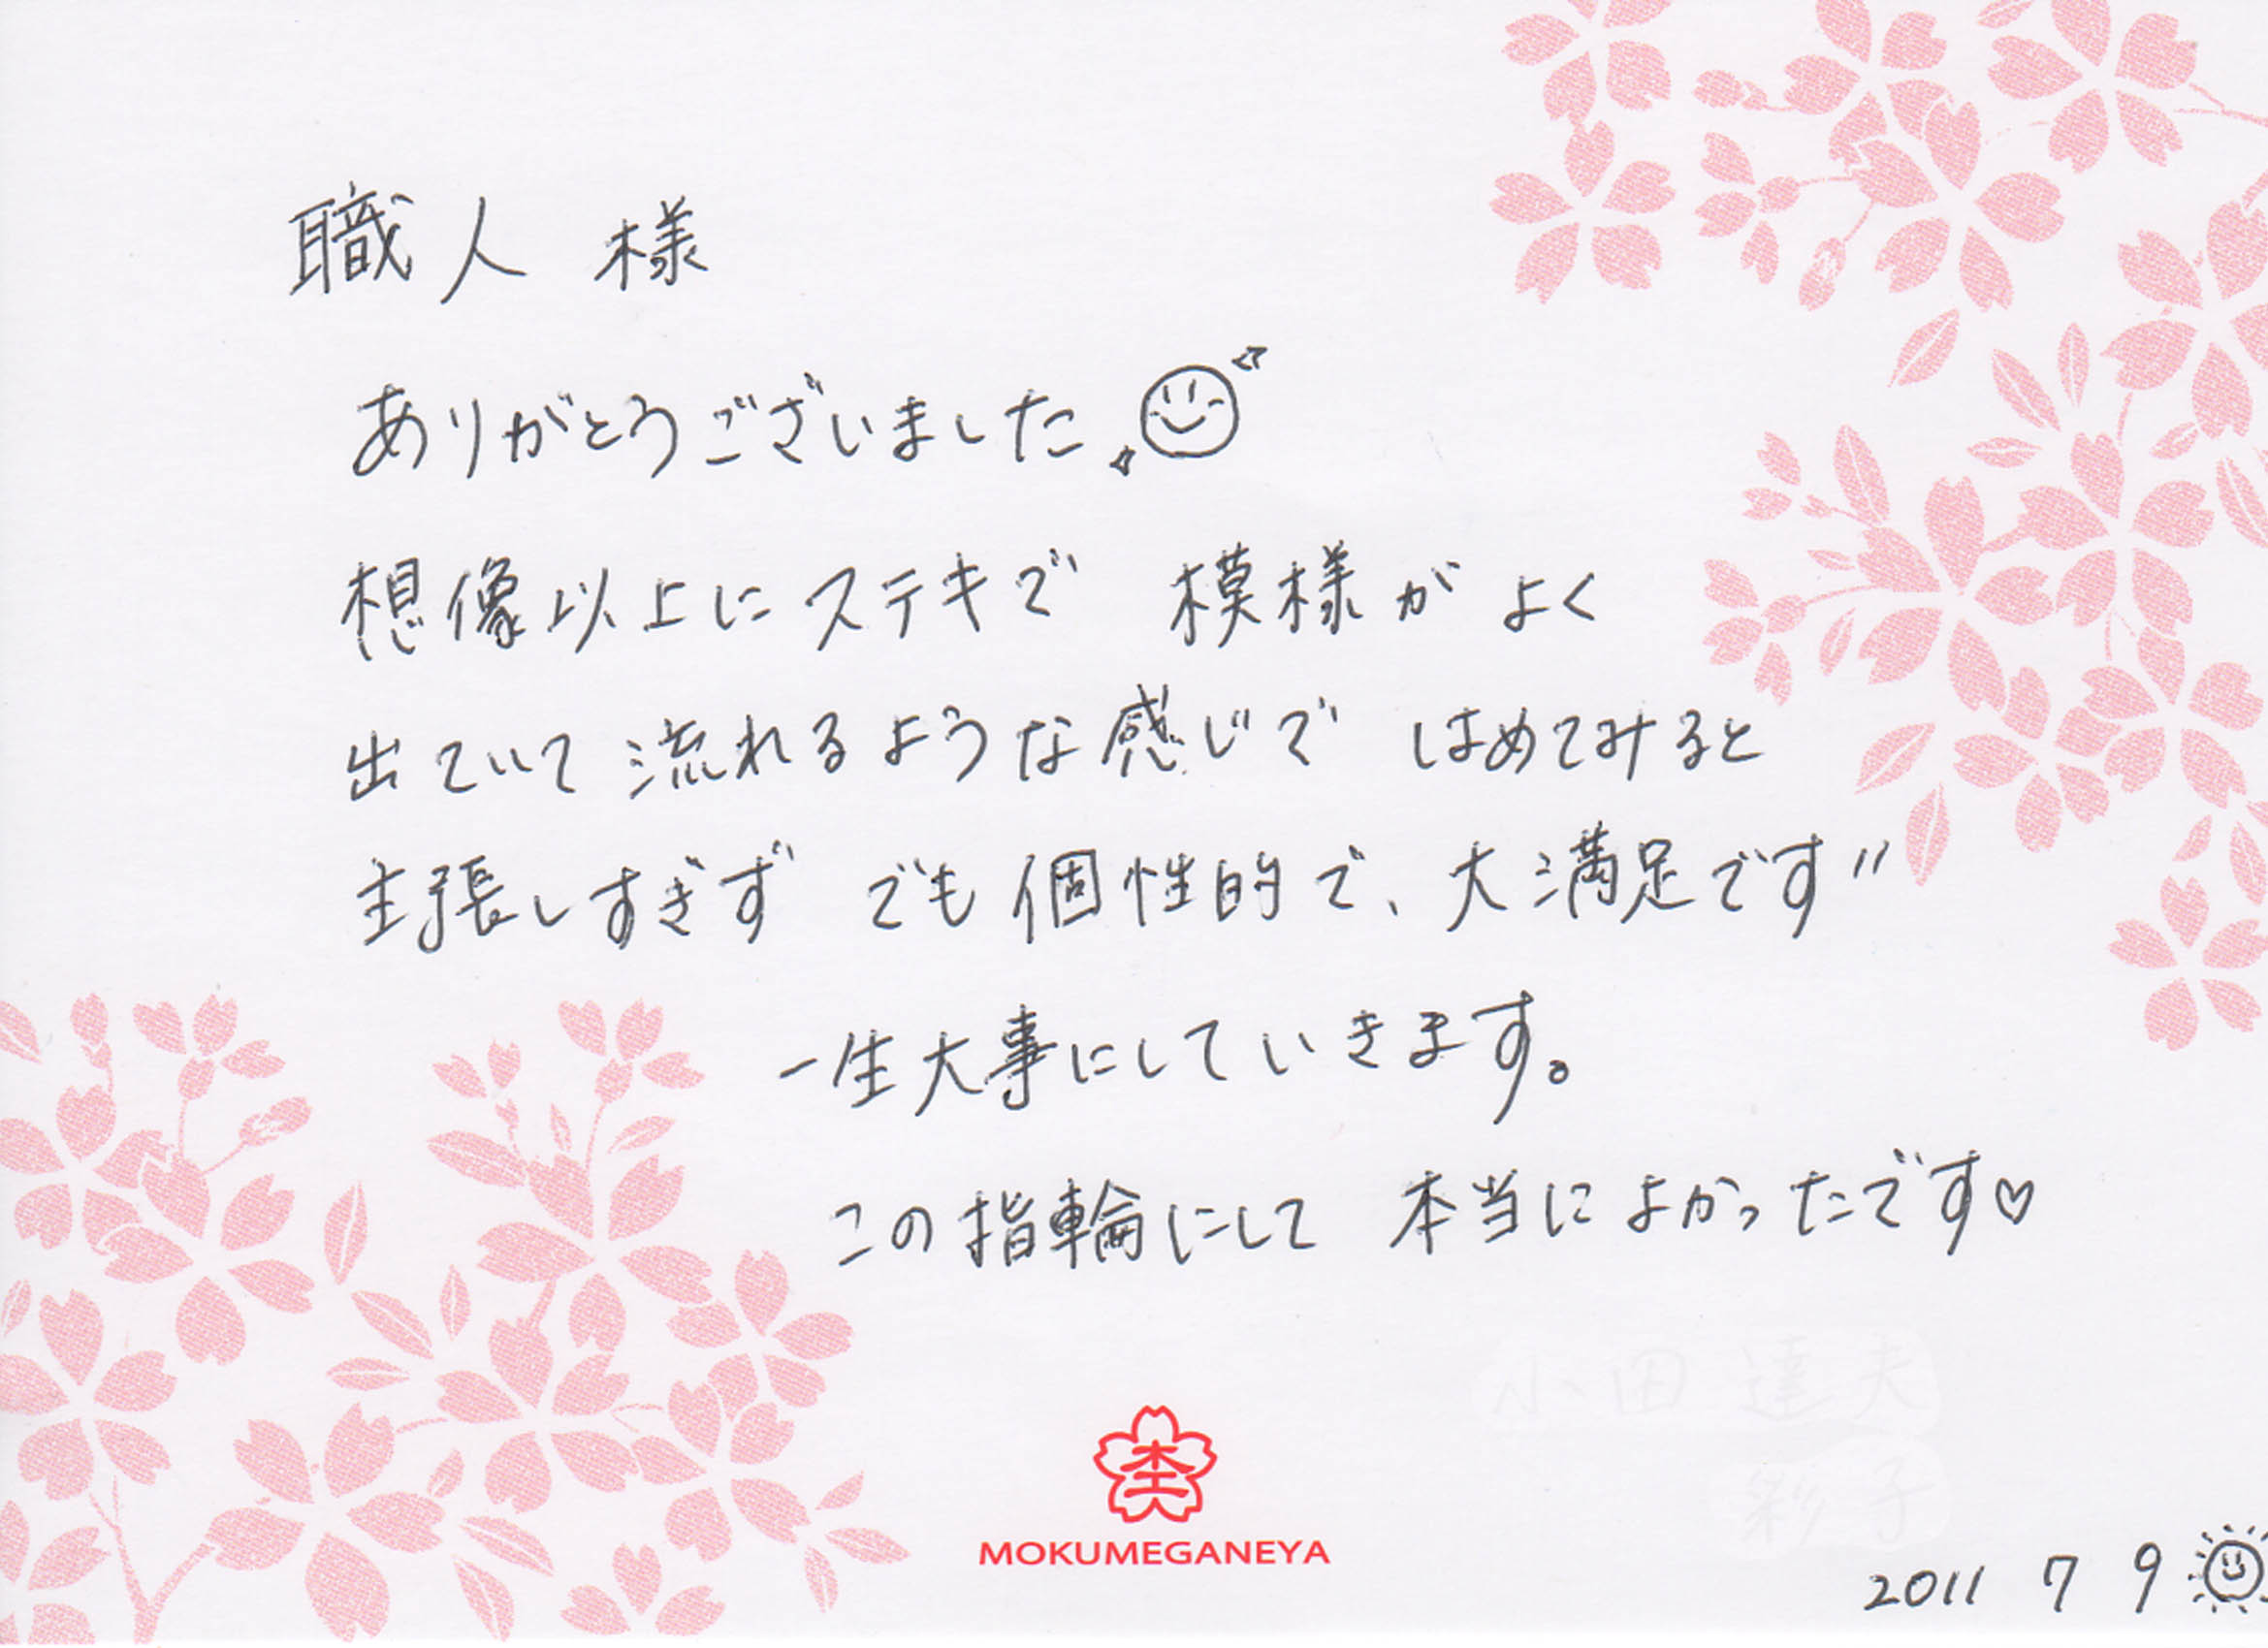 職人 様
ありがとうございました
想像以上にステキで 模様が よく
出ていて 流れるような感じで はめてみると
主張しすぎず でも個性的で、大満足です〃
一生大事にしていきます。
この指輪にして 本当によかったです♡
杢
MOKUMEGANEYA
2011 7 9